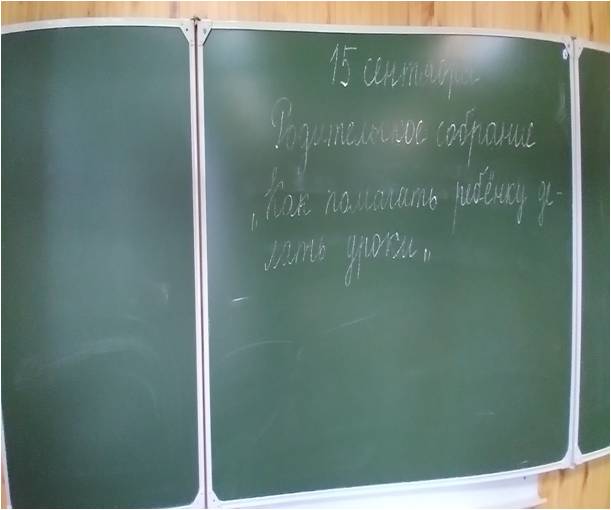 15 сентября
Родительское собрание
„Как помогать ребёнку де-
лать уроки„